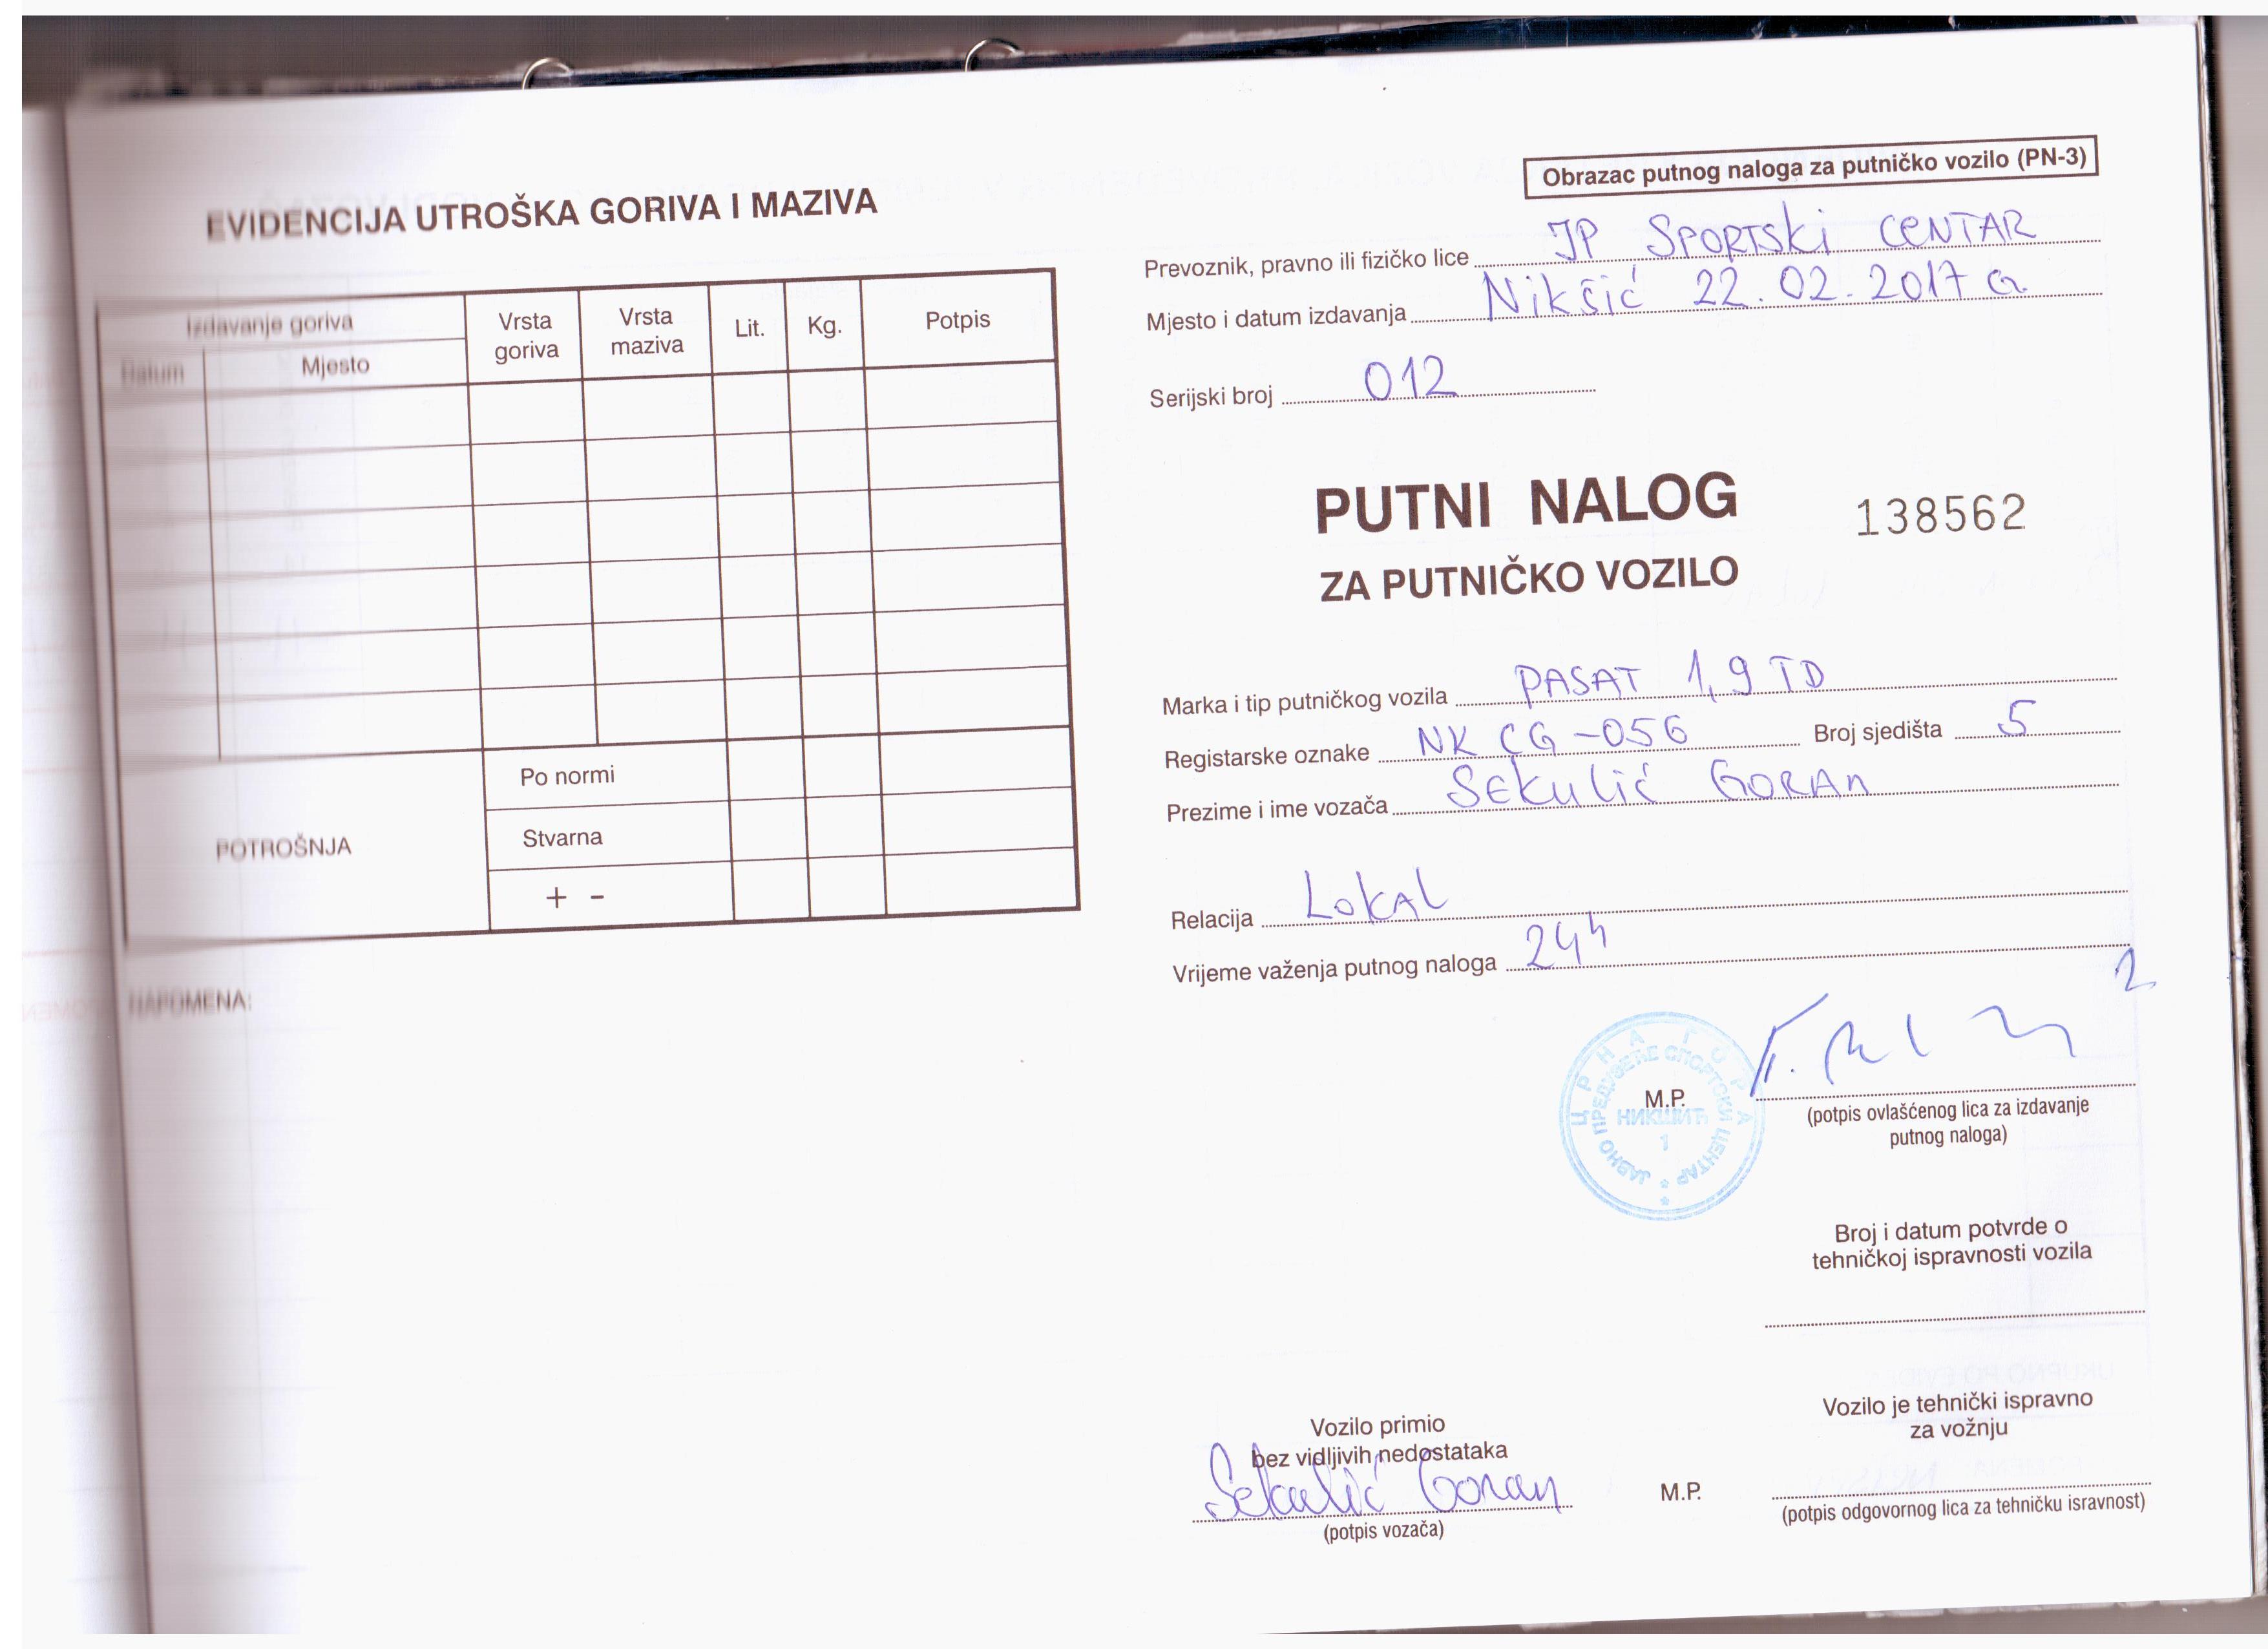 EVIDENCIJA UTROŠKA GORIVA I MAZIVA
Izdavanje goriva
Datum
Mjesto
Vrsta goriva
Vrsta maziva
Lit.
Kg.
Potpis
POTROŠNJA
Po normi
Stvarna
+ -
NAPOMENA:
Obrazac putnog naloga za putničko vozilo (PN-3)
Prevoznik, pravno ili fizičko lice JP SPORTSKI CENTAR
Mjesto i datum izdavanja Nikšić 22.02.2017 G
Serijski broj 012
PUTNI NALOG
138562
ZA PUTNIČKO VOZILO
Marka i tip putničkog vozila PASAT 1,9 TD
Registarske oznake NK CG-056 Broj sjedišta 5
Prezime i ime vozača SEKULIĆ GORAN
Relacija LOKAL
Vrijeme važenja putnog naloga 24h
ЦРНА ГОРА
ЈАВНО ПРЕДУЗЕЋЕ СПОРТСКИ ЦЕНТАР
НИКШИЋ
1
M.P.
(potpis ovlašćenog lica za izdavanje
putnog naloga)
Broj i datum potvrde o
tehničkoj ispravnosti vozila
Vozilo je tehnički ispravno
za vožnju
Vozilo primio
bez vidljivih nedostataka
Sekulić Goran
(potpis vozača)
M.P.
(potpis odgovornog lica za tehničku isravnost)